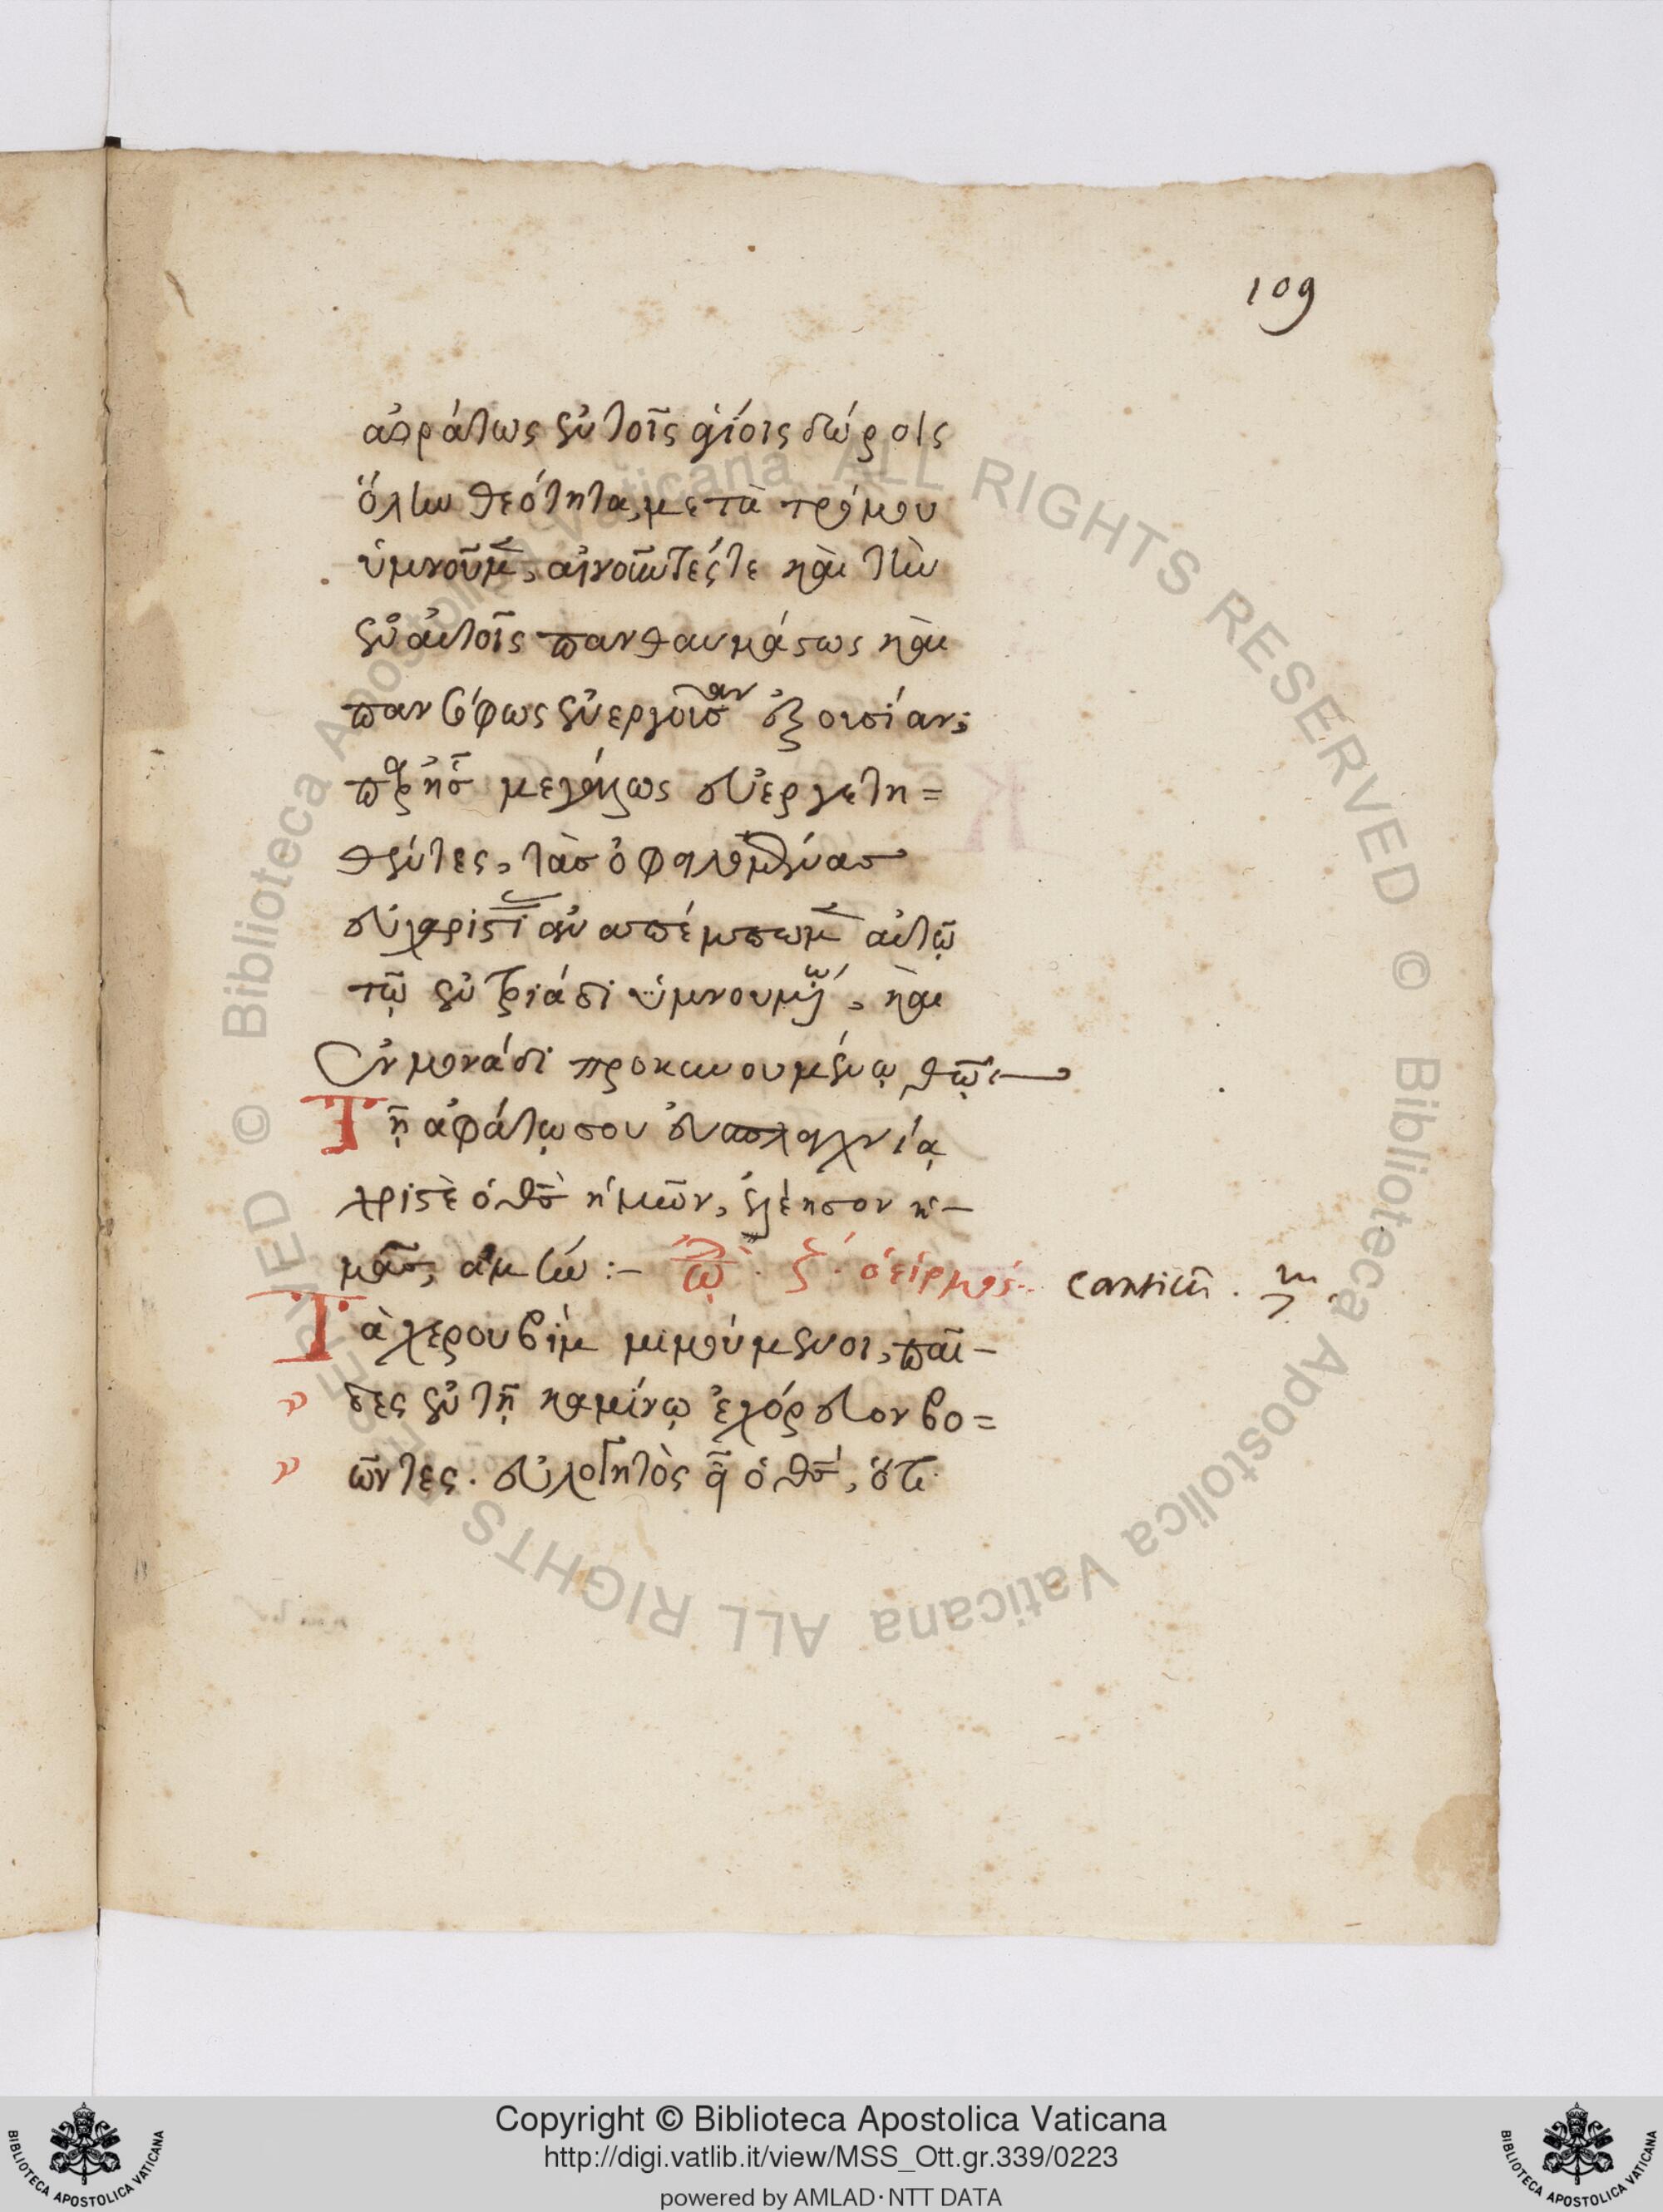 109
ἀοράτως ἐν τοῖς ἁγίοις δώροις
ὅλην θεότητα, μετὰ τρόμου
ὑμνοῦμ, αἰνοῦντές τε καὶ τὴν
ἐν αὐτοῖς πανθαυμάστως καὶ
πανσόφως ἐνεργοῦσαν ἐξουσίαν,
παρ' ἧς μεγάλως εὐεργετη=
θέντες, τὰς ὀφειλομένας
εὐχαριστί ἀναπέμπωμ αὐτῷ
τῷ ἐν τριάδι ὑμνουμένῳ, καὶ
ἐν μονάδι προσκυνουμένῳ θῶ
Τῇ ἀφάτῳ σου εὐσπλαγχνίᾳ
χριστὲ ὁ θς ἡμῶν, ἐλέησον ἡ-
μᾶς, ἀμήν :- ᾠδ. ζ. ὁ εἱρμός. canticum. 7m.
Τὰ χερουβὶμ μιμούμενοι, παῖ-
δες ἐν τῇ καμίνῳ ἐχόρευον βο=
ῶντες. εὐλογητὸς εἶ ὁ θς, ὅτι
© Biblioteca Apostolica Vaticana ALL RIGHTS RESERVED © Biblioteca Apostolica Vaticana ALL RIGHTS RESERVED
Copyright © Biblioteca Apostolica Vaticana
http://digi.vatlib.it/view/MSS_Ott.gr.339/0223
powered by AMLAD·NTT DATA
BIBLIOTECA APOSTOLICA VATICANA
BIBLIOTECA APOSTOLICA VATICANA